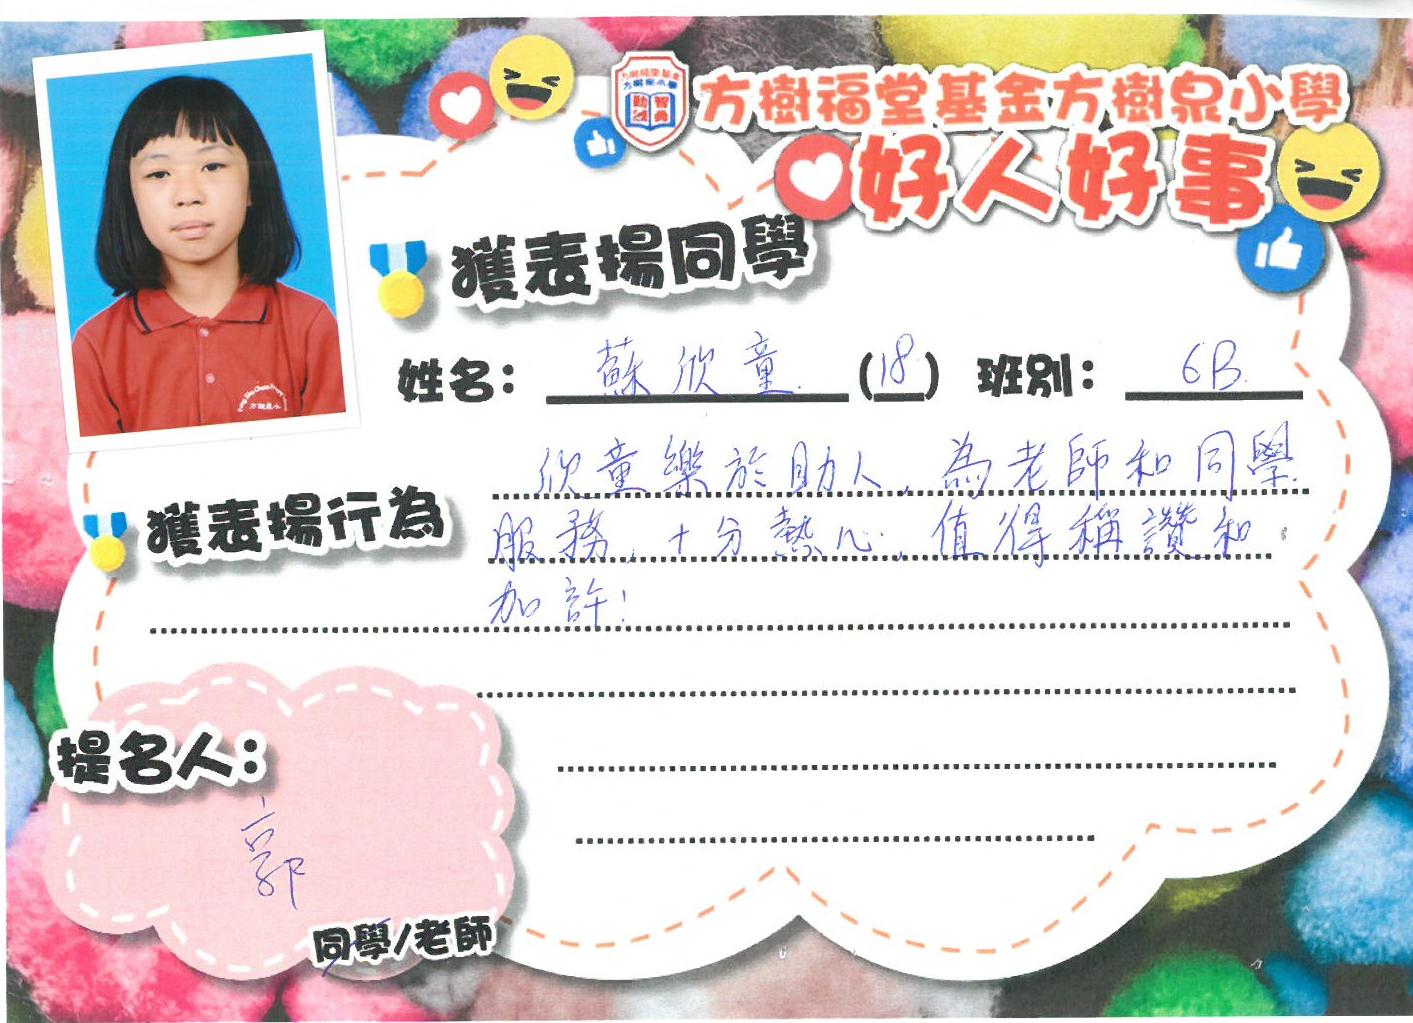 方樹福堂基金方樹泉小學
好人好事
獲表揚同學
姓名： 蘇欣童 (18) 班別： 6B
獲表揚行為
欣童樂於助人，為老師和同學
服務，十分熱心，值得稱讚和
加許！
提名人：
郭
同學/老師
方樹泉小